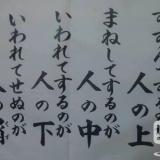 人の上
まねしてするのが
人の中
いわれてするのが
人の下
いわれてせぬのが